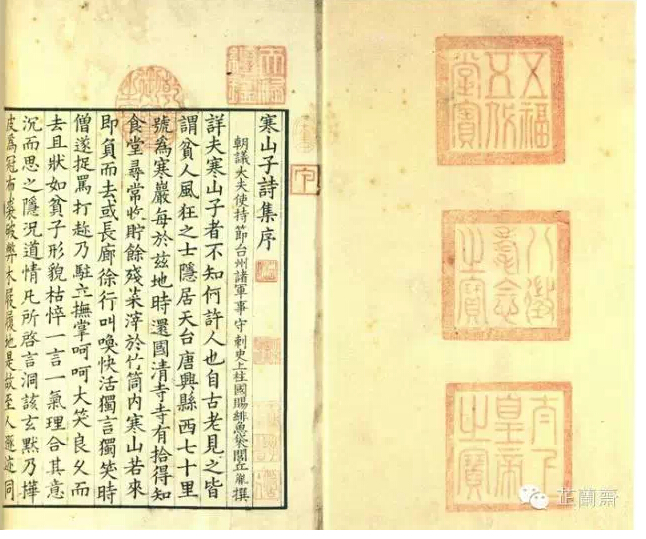 五福
五代
堂寶
八徵
耄念
之寶
太上
皇帝
之寶
寒山子詩集序
朝議大夫使持節台州諸軍事守刺史上柱國賜緋魚袋閭丘胤撰
詳夫寒山子者不知何許人也自古老見之皆
謂貧人風狂之士隱居天台唐興縣西七十里
號爲寒巖每於茲地時還國清寺寺有拾得知
食堂尋常收貯餘殘菜滓於竹筒内寒山若來
即負而去或長廊徐行叫喚快活獨言獨笑時
僧遂捉罵打趂乃駐立撫掌呵呵大笑良久而
去且狀如貧子形貌枯悴一言一氣理合其意
沉而思之隱況道情凡所啓言洞該玄默乃樺
皮爲冠布裘破弊木屐履地是故至人遯迹同
芷蘭齋